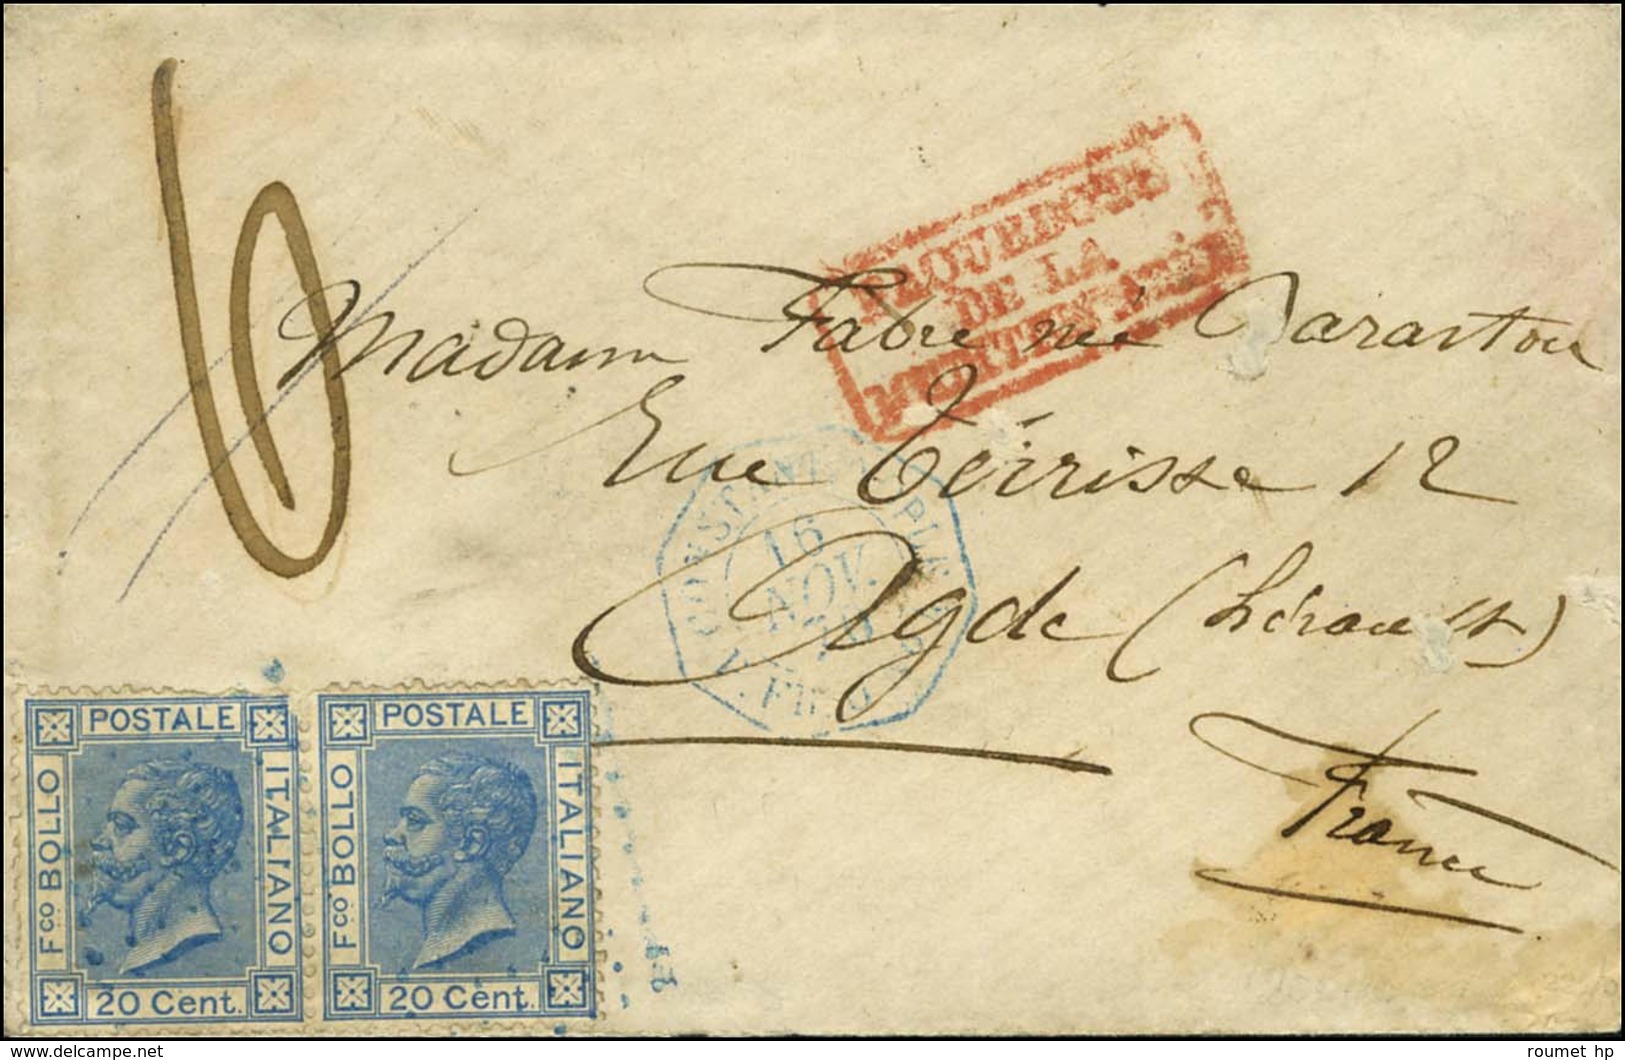 6
PAQUEBOTS
DE LA
MÉDITERRANÉE
Madame Fabre née
Rue Térisse 12
Agde (hérault)
France
CONSTANTINOPLE
16
NOV.
POSTALE
ITALIANO
Fco BOLLO
20 Cent.
POSTALE
ITALIANO
Fco BOLLO
20 Cent.
delcampe.net
roumet hp